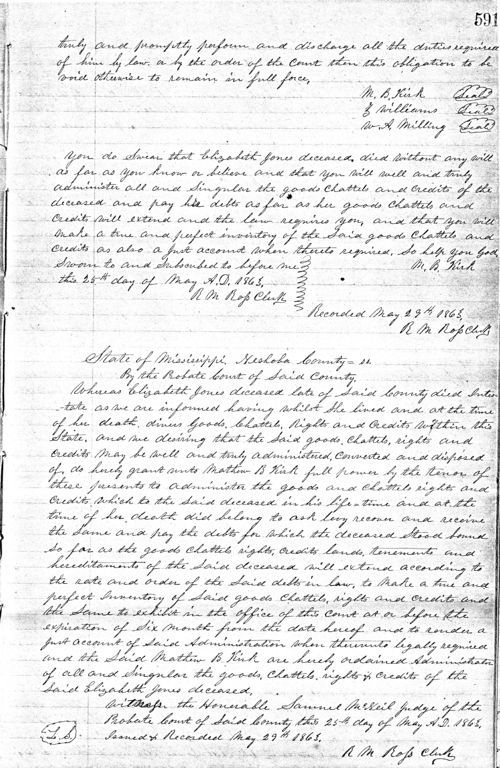 591
truly and promptly perform and discharge all the duties required
of him by law or by the order of the Court then this obligation to be
void otherwise to remain in full force,
M. B. Kirk (Seal)
E Williams (Seal)
W. A. Milling (Seal)
You do Swear that Elizabeth Jones deceased, died without any will
as far as you know or believe and that you will well and truly
administer all and Singular the goods Chattels and Credits of the
deceased and pay her debts as far as her goods Chattels and
Credits will extend and the law requires you, and that you will
make a true and perfect inventory of the Said goods Chattels and
Credits as also a just account when thereto required, So help you God
Sworn to and Subscribed to before me M. B. Kirk
this 25th day of May A.D. 1863,
R M Ross Clerk
Recorded May 29th 1863,
R. M. Ross Clerk
State of Mississippi, Neshoba County = ss
By the Probate Court of Said County,
Whereas Elizabeth Jones deceased late of Said County died Intes-
tate as we are informed having whilst She lived and at the time
of her death, divers Goods, Chattels, Rights and Credits Within this
State, and we desiring that the Said goods, Chattels, rights and
Credits may be well and truly administered, Converted and disposed
of, do herely grant unto Mathew B Kirk full power by the tenor of
these presents to administer the goods and Chattels rights and
Credits, which to the Said deceased in his life-time and at the
time of her death did belong to ask levy recover and receive
the Same and pay the debts for which the deceased Stood bound
So far as the goods Chattels rights, Credits lands, tenements and
hereditaments of the Said deceased will extend according to
the rate and order of the Said debts in law, to make a true and
perfect Inventory of Said goods Chattels, rights and Credits and
the Same to exhibit in the Office of this Court at or before the
expiration of Six month from the date hereof and to render a
just account of Said Administration when thereunto legally required
and the Said Mathew B Kirk are herely ordained Administrator
of all and Singular the goods, Chattels, rights & Credits of the
Said Elizabeth Jones deceased,
Witness the Honorable Samuel McNeil Judge of the
Probate Court of Said County this 25th day of May A.D. 1863,
(L.S.) Issued & Recorded May 29th 1863,
R M Ross Clerk